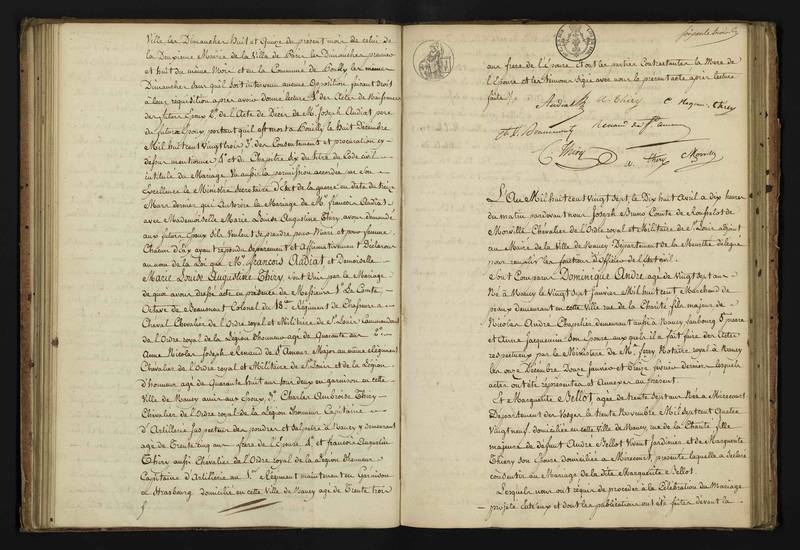 Ville les Dimanches huit et quinze du present mois de celui de
la Deuxieme Mairie de la Ville de Paris les Dimanches premier
et huit du même Mois et en la Commune de Pouilly les mêmes
Dimanches sans qu'il soit intervenu aucune opposition faisant droit
à leur requisition après avoir donné lecture 1° des Actes de Naissances
des futurs Epoux 2° de l'Acte de Décès de Mr Joseph Audiat père
du futur Epoux portant qu'il est mort à Pouilly le huit Décembre
Mil huit cent Vingt trois 3° des Consentement et procuration ci
dessus mentionnés 4° et du Chapitre six du titre du Code civil
intitulé du Mariage Vu aussi la permission accordée par Son
Excellence le Ministre Secrétaire d'Etat de la guerre en date du treize
Mars dernier qui autorise le Mariage de Mr françois Audiat
avec Mademoiselle Marie Louise Augustine Thiry, avons demandé
aux futurs Epoux s'ils veulent se prendre pour Mari et pour femme
Chacun d'eux ayant répondu séparément et affirmativement Déclarons
au nom de la loi que Mr françois Audiat et Demoiselle
Marie Louise Augustine Thiry sont Unis par le Mariage
de quoi avons dressé acte en présence de Messieurs 1° Le Comte
Octave de Beaumont Colonel du 18me Régiment de Chasseurs à
Cheval Chevalier de l'Ordre royal et Militaire de St Louis Commandant
de l'Ordre royal de la Légion d'honneur agé de Quarante ans 2°
Anne Nicolas Joseph Renaud de St Amour Major au même Régiment
Chevalier de l'Ordre royal et Militaire de St Louis et de la Légion
d'honneur agé de Quarante huit ans tous deux en garnison en cette
Ville de Nancy amis aux Epoux, 3° Charles Ambroise Thiry
Chevalier de l'Ordre royal de la Légion d'honneur Capitaine
d'Artillerie Inspecteur des poudres et salpetres à Nancy y demeurant
agé de Trente cinq ans frère de l'Epouse 4° et françois Augustin
Thiry aussi Chevalier de l'Ordre royal de la Légion d'honneur
Capitaine d'Artillerie au 1er Régiment maintenant en Garnison
à Strasbourg domicilié en cette Ville de Nancy agé de Trente trois
aus frere de l'Epouse et ont les parties Contractantes la Mère de
l'Epouse et les témoins signé avec nous le présent acte après lecture
faite.
Audiat A. Thiry C Thiry
Beaumont Renaud de St amour
Thiry Thiry Monville
L'An Mil huit cent Vingt sept, le Dix huit Avril à dix heures
du matin pardevant nous Joseph Bruno Comte de
Monville Chevalier de l'Ordre royal et Militaire de St Louis adjoint
au Maire de la Ville de Nancy Département de la Meurthe délégué
pour remplir les fonctions d'Officier de l'Etat civil.
Sont Comparus Dominique André agé de Vingt sept ans
Né à Nancy le Vingt sept janvier Mil huit cent Marchand de
peaux demeurant en cette Ville rue de la Charité fils majeur de
Nicolas André Chapelier demeurant aussi à Nancy faubourg St pierre
et Anne Jacquemin son Epouse auxquels il a fait faire des Actes
respectueux par le Ministère de Me Notaire royal à Nancy
les onze Décembre Douze janvier et Treize février dernier lesquels
actes ont été représentés et Annexés au présent.
Et Marguerite Bellot agée de trente sept ans Née à Mirecourt
Département des Vosges le trente Novembre Mil sept cent Quatre
Vingt neuf domiciliée en cette Ville de Nancy, rue de la Charité fille
majeure de défunt André Bellot Vivant Jardinier et de Marguerite
Thiery son Epouse domiciliée à Mirecourt, présente laquelle a déclaré
consentir au Mariage de la dite Marguerite Bellot.
Lesquels nous ont requis de procéder à la Célébration du Mariage
projeté entr'eux et dont les publications ont été faites devant la